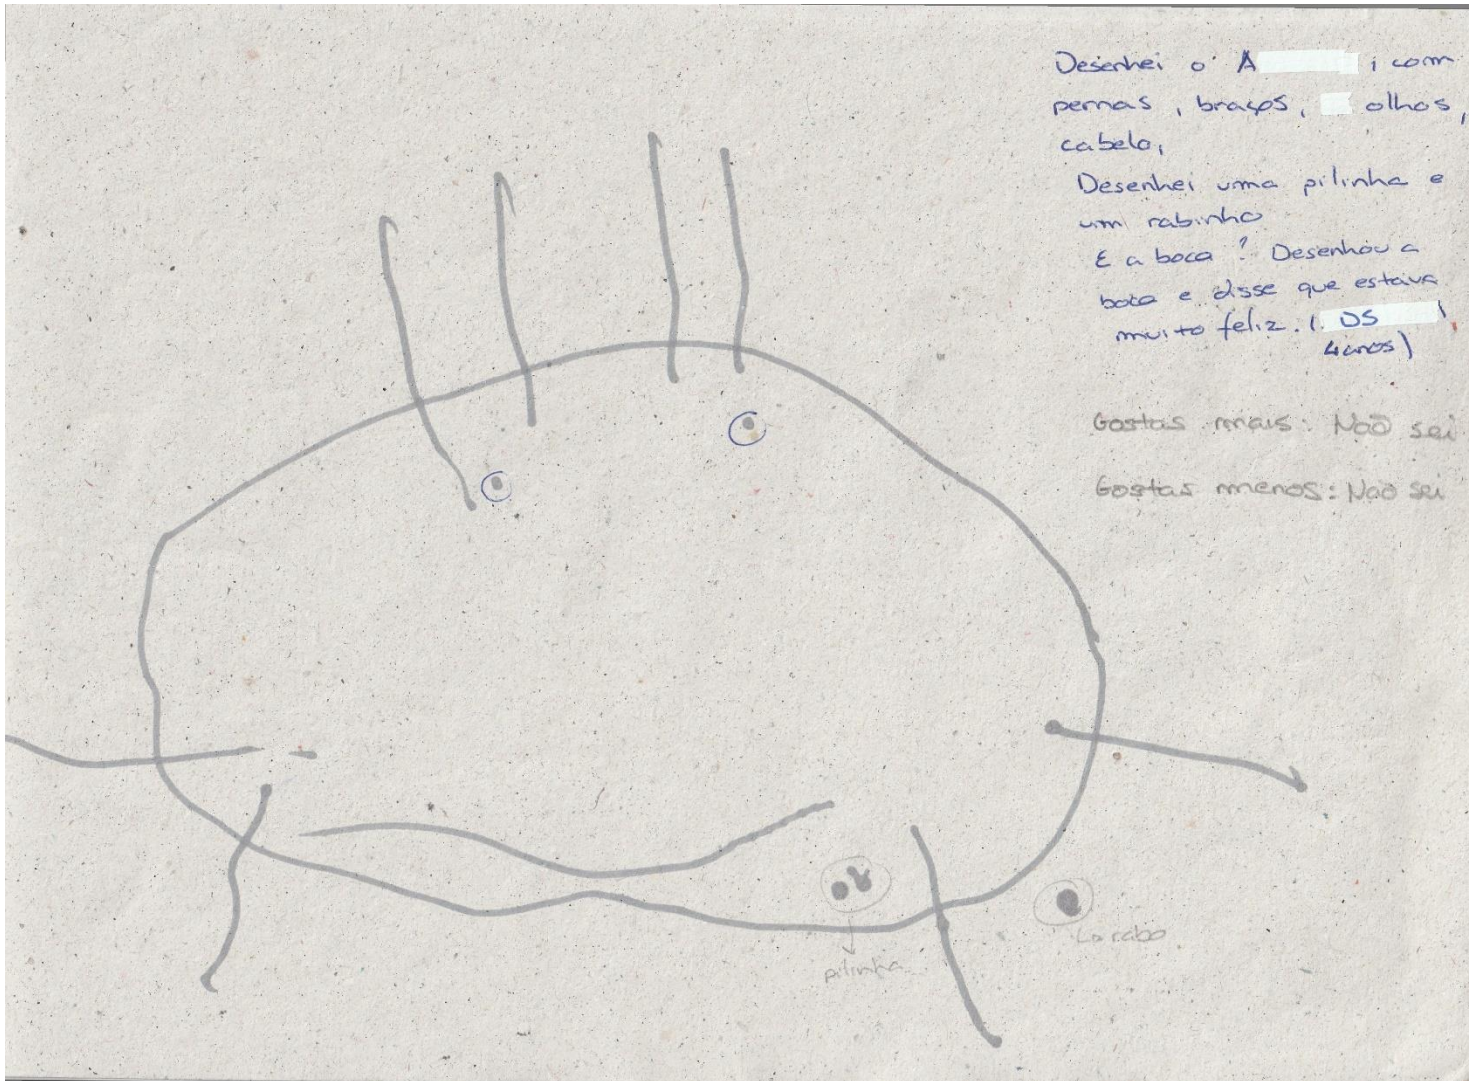 Desenhei o A , com
pernas, braços, olhos,
cabelo,
Desenhei uma pilinha e
um rabinho
E a boca? Desenhou a
boca e disse que estava
muito feliz. ( DS ,
4 anos)
Gostas mais: Não sei
Gostas menos: Não sei
pilinha
rabo